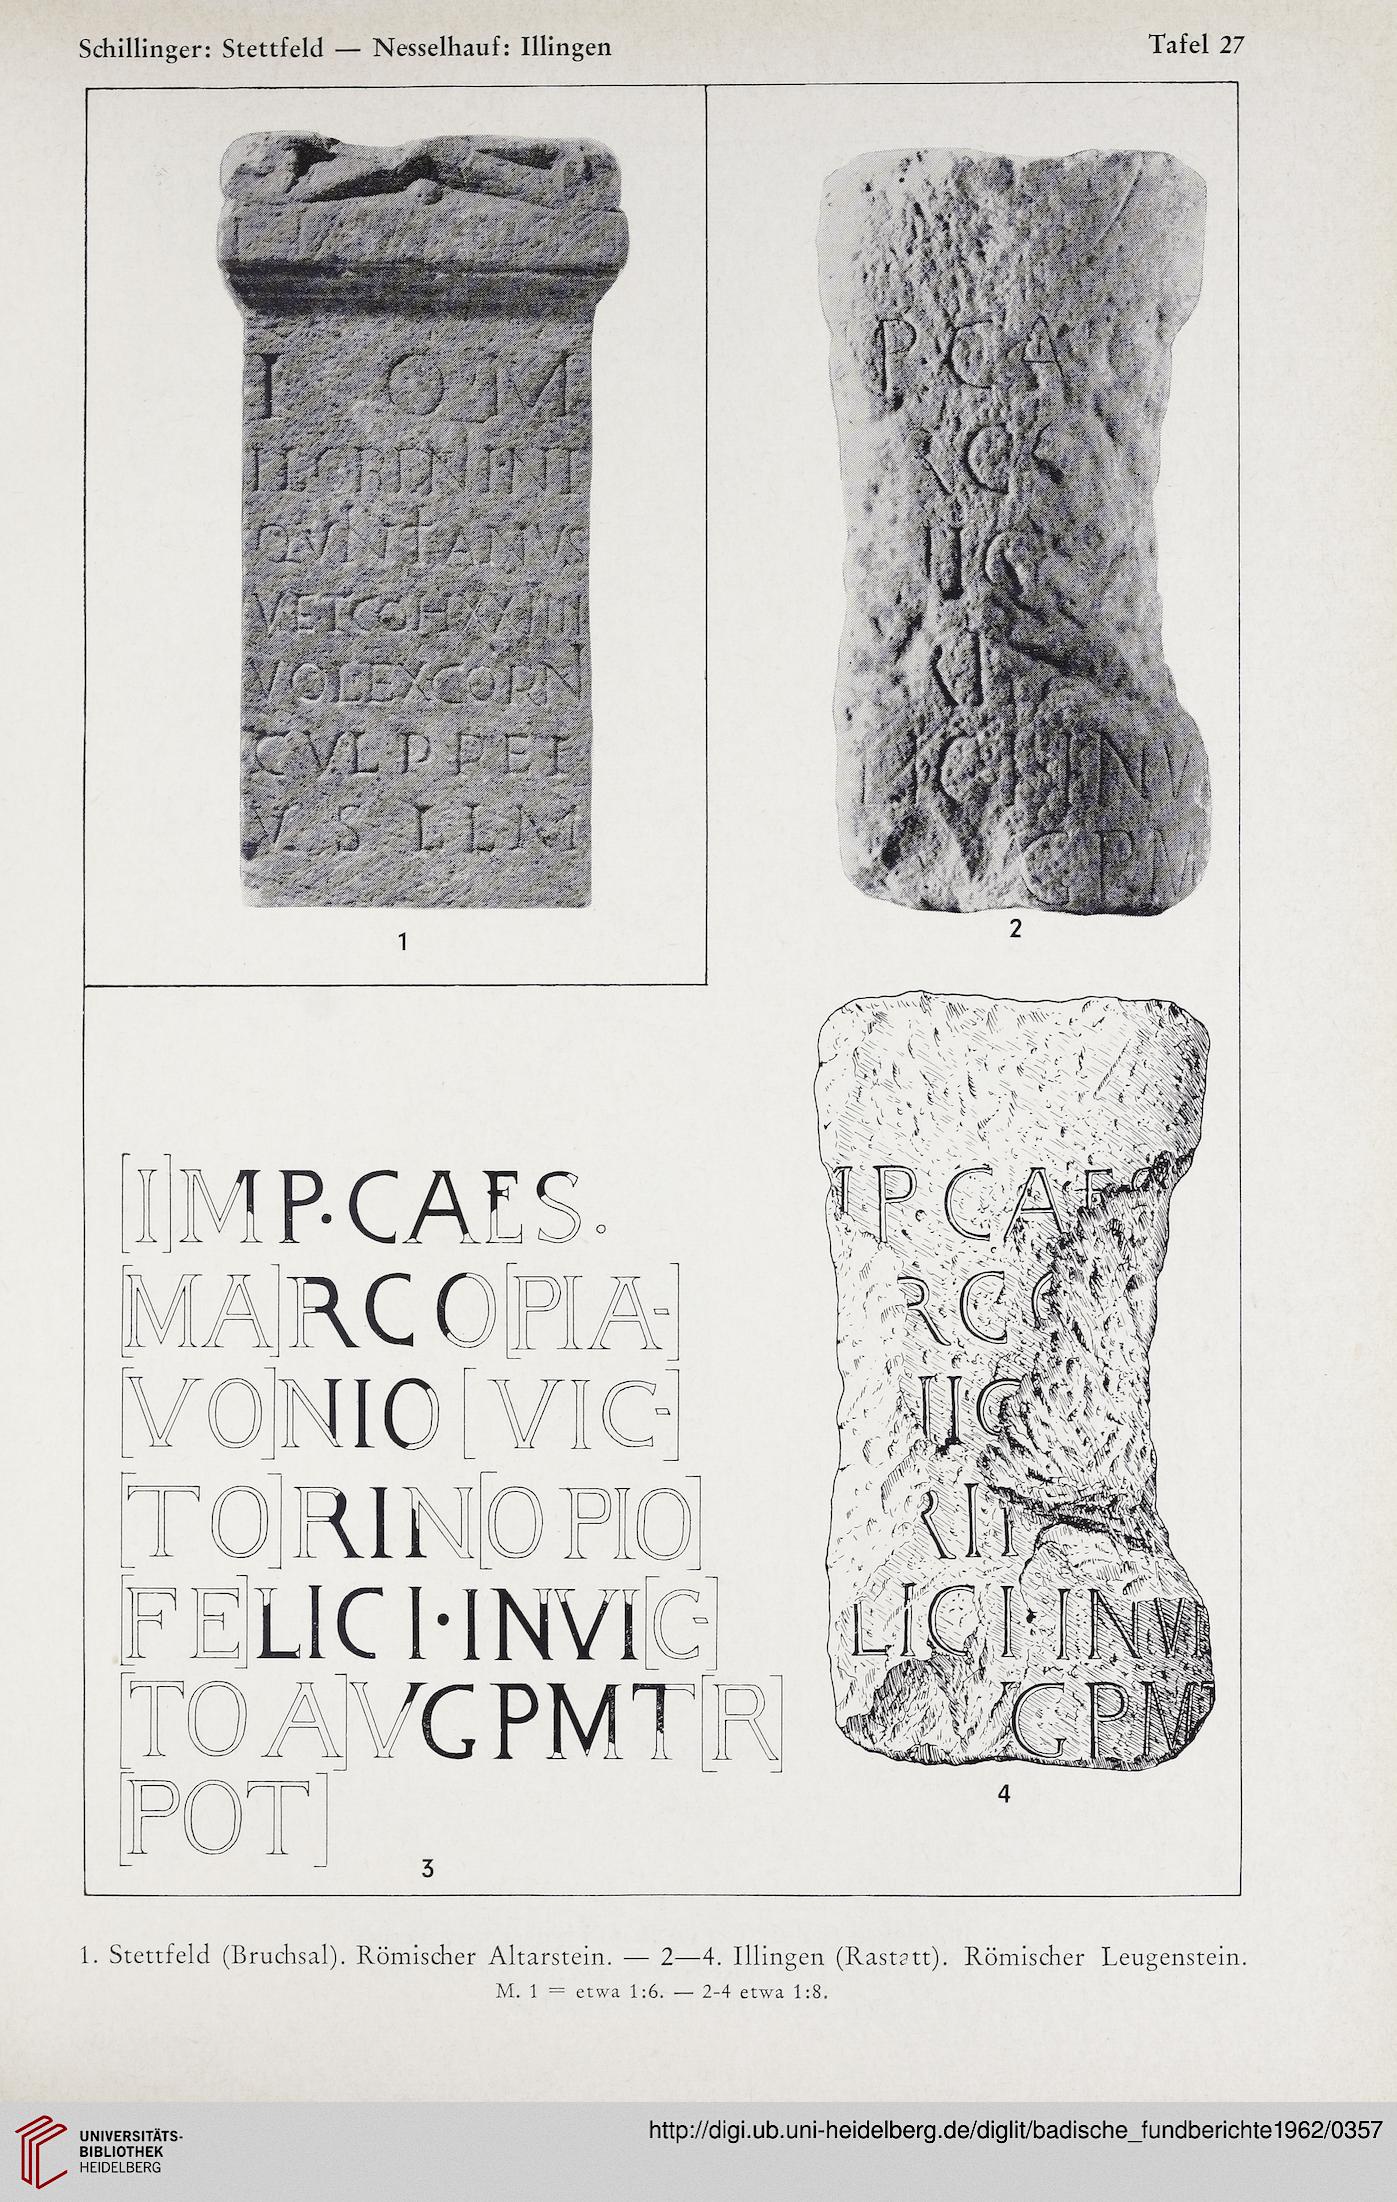 Schillinger: Stettfeld — Nesselhauf: Illingen
Tafel 27
I O M
QVINTANVS
VET COH XXIIII
VOL EX CORN
CVL P P ET
V S L L M
1
P C A
R C
I I C
R I
L I C I I N V
G P M
2
[I]MP·CAES.
[MA]RCO[PIA-]
[VO]NIO[VIC-]
[TO]RIN[O PIO]
[FE]LICI·INVI[C-]
[TO A]VGPMT[R]
[POT]
3
IP CAES
RCO
IIO
RII
LICI·INVI
VGPMT
4
1. Stettfeld (Bruchsal). Römischer Altarstein. — 2—4. Illingen (Rastatt). Römischer Leugenstein.
M. 1 = etwa 1:6. — 2-4 etwa 1:8.
UNIVERSITÄTS-
BIBLIOTHEK
HEIDELBERG
http://digi.ub.uni-heidelberg.de/diglit/badische_fundberichte1962/0357